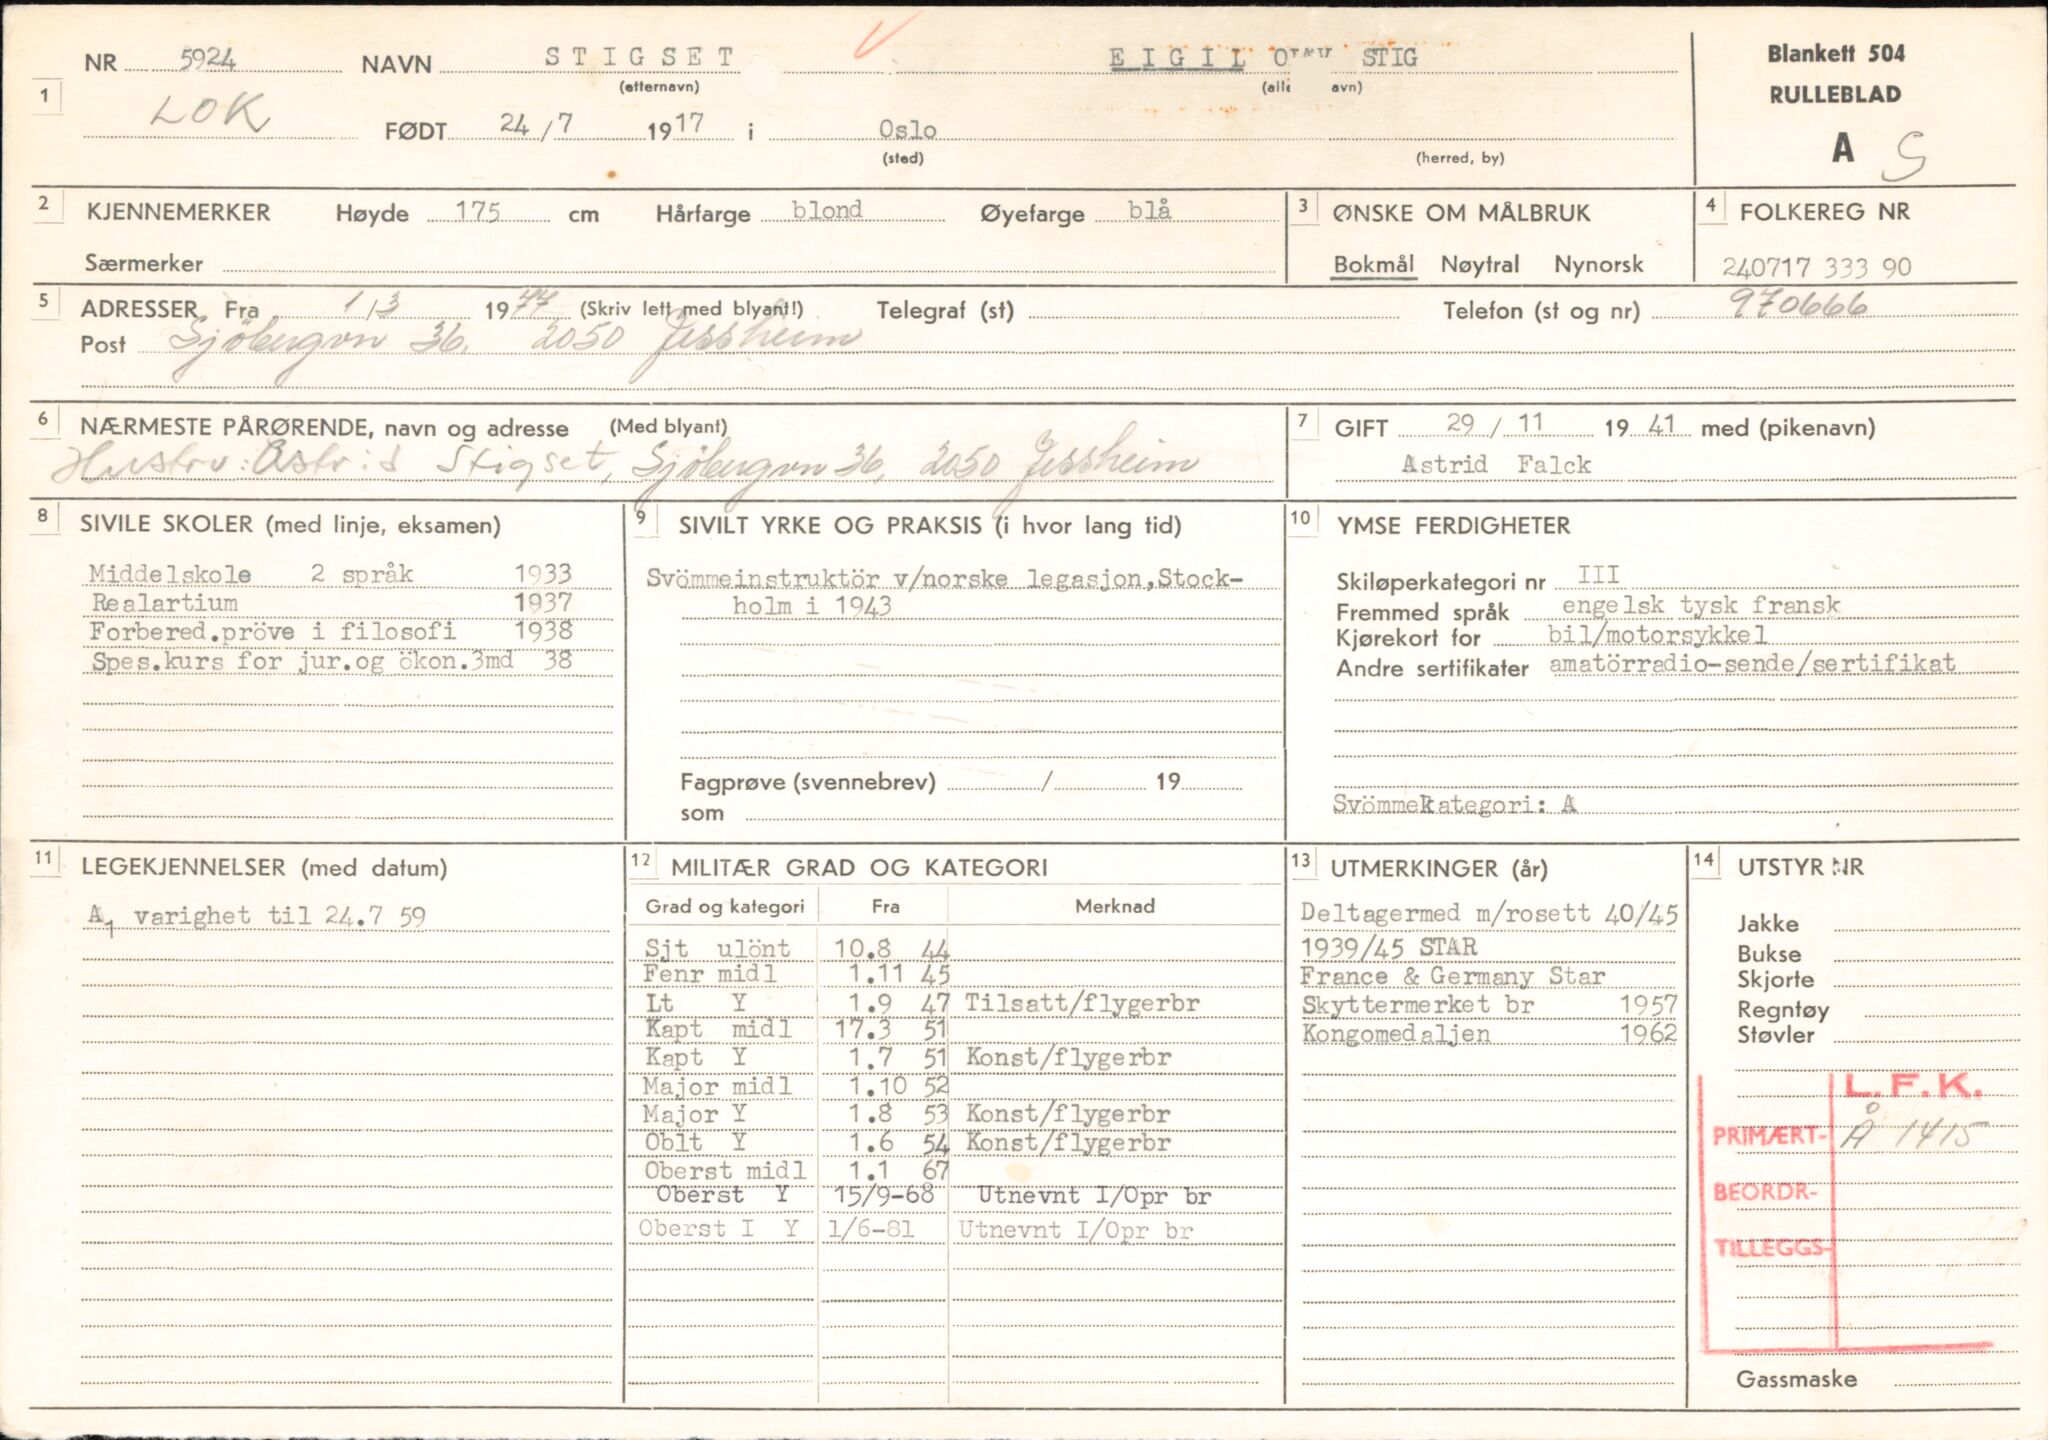 NR 5924 NAVN STIGSET EIGIL STIG
(etternavn)
1 LOK FØDT 24/7 1917 i Oslo
(sted) (herred, by)
Blankett 504
RULLEBLAD
A S
2 KJENNEMERKER Høyde 175 cm Hårfarge blond Øyefarge blå
Særmerker
3 ØNSKE OM MÅLBRUK
Bokmål Nøytral Nynorsk
4 FOLKEREG NR
240717 333 90
5 ADRESSER Fra 1/3 1977 (Skriv lett med blyant!) Telegraf (st) Telefon (st og nr) 970666
Post Sjöbergvn 36, 2050 Jessheim
6 NÆRMESTE PÅRØRENDE, navn og adresse (Med blyant)
Hustru: Astrid Stigset, Sjöbergvn 36, 2050 Jessheim
7 GIFT 29/11 1941 med (pikenavn)
Astrid Falck
8 SIVILE SKOLER (med linje, eksamen)
Middelskole 2 språk 1933
Realartium 1937
Forbered.pröve i filosofi 1938
Spes.kurs for jur.og ökon.3md 38
9 SIVILT YRKE OG PRAKSIS (i hvor lang tid)
Svömmeinstruktör v/norske legasjon,Stock-
holm i 1943
Fagprøve (svennebrev) / 19
som
10 YMSE FERDIGHETER
Skiløperkategori nr III
Fremmed språk engelsk tysk fransk
Kjørekort for bil/motorsykkel
Andre sertifikater amatörradio-sende/sertifikat
Svömmekategori: A
11 LEGEKJENNELSER (med datum)
A1 varighet til 24.7 59
12 MILITÆR GRAD OG KATEGORI
Grad og kategori Fra Merknad
Sjt ulönt 10.8 44
Fenr midl 1.11 45
Lt Y 1.9 47 Tilsatt/flygerbr
Kapt midl 17.3 51
Kapt Y 1.7 51 Konst/flygerbr
Major midl 1.10 52
Major Y 1.8 53 Konst/flygerbr
Oblt Y 1.6 54 Konst/flygerbr
Oberst midl 1.1 67
Oberst Y 15/9-68 Utnevnt I/Opr br
Oberst I Y 1/6-81 Utnevnt I/Opr br
13 UTMERKINGER (år)
Deltagermed m/rosett 40/45
1939/45 STAR
France & Germany Star
Skyttermerket br 1957
Kongomedaljen 1962
14 UTSTYR NR
Jakke
Bukse
Skjorte
Regntøy
Støvler
L.F.K.
PRIMÆRT- Å 1415
BEORDR-
TILLEGGS-
Gassmaske